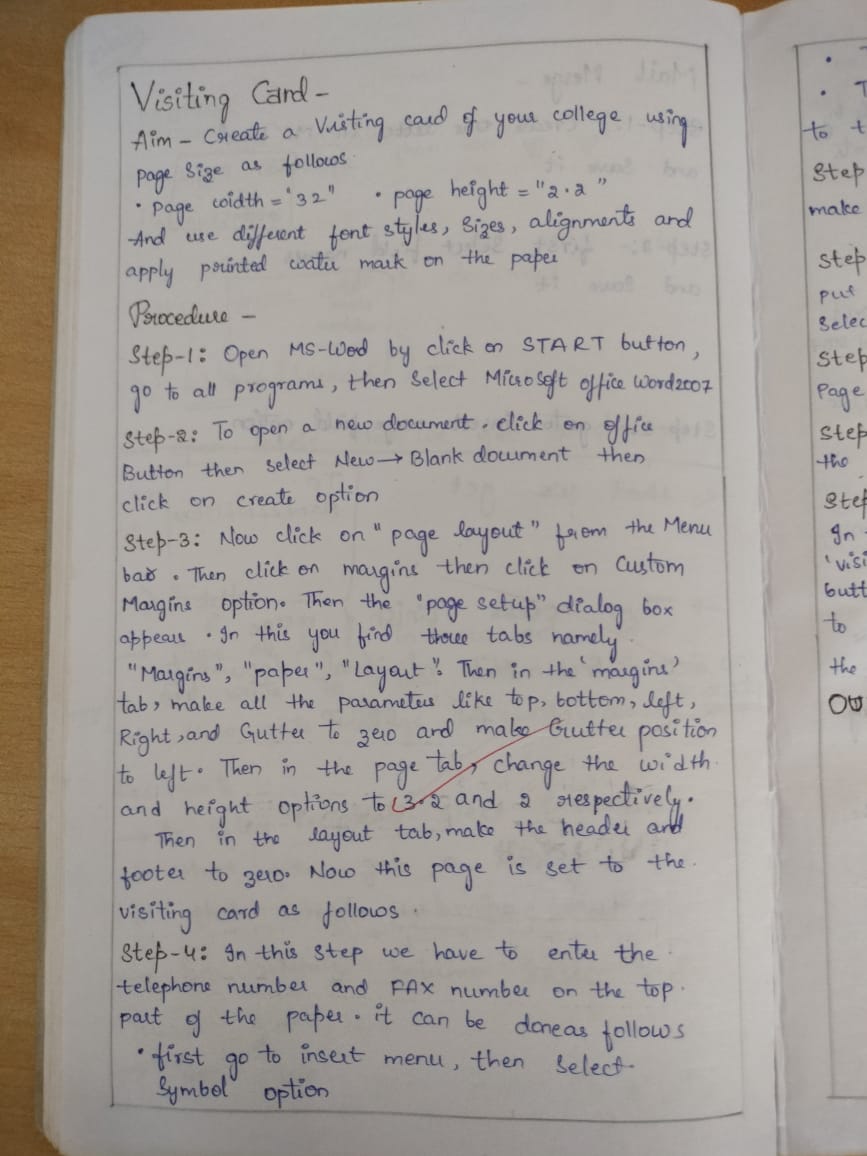 Visiting Card -
Aim - Create a Visting card of your college using
page size as follows
• Page width = "32" • page height = "2.2"
And use different font styles, sizes, alignments and
apply printed water mark on the paper
Procedure -
Step-1: Open MS-Word by click on START button,
go to all programs, then select Microsoft office Word2007
Step-2: To open a new document. click on office
Button then select New → Blank document then
click on create option
Step-3: Now click on "page layout" from the Menu
bar. Then click on margins then click on Custom
Margins option. Then the "page setup" dialog box
appears. In this you find three tabs namely
"Margins", "paper", "Layout". Then in the 'margins'
tab, make all the parameters like top, bottom, left,
Right, and Gutter to zero and make Grutter position
to left. Then in the page tab, change the width
and height options to 3.2 and 2 respectively.
Then in the layout tab, make the header and
footer to zero. Now this page is set to the
visiting card as follows.
Step-4: In this step we have to enter the
telephone number and FAX number on the top
part of the paper. it can be doneas follows
• first go to insert menu, then select
Symbol option
• T
to t
Step
make
Step
put
Selec
Step
Page
Step
the
Step
In
'visi
butt
to
the
OU